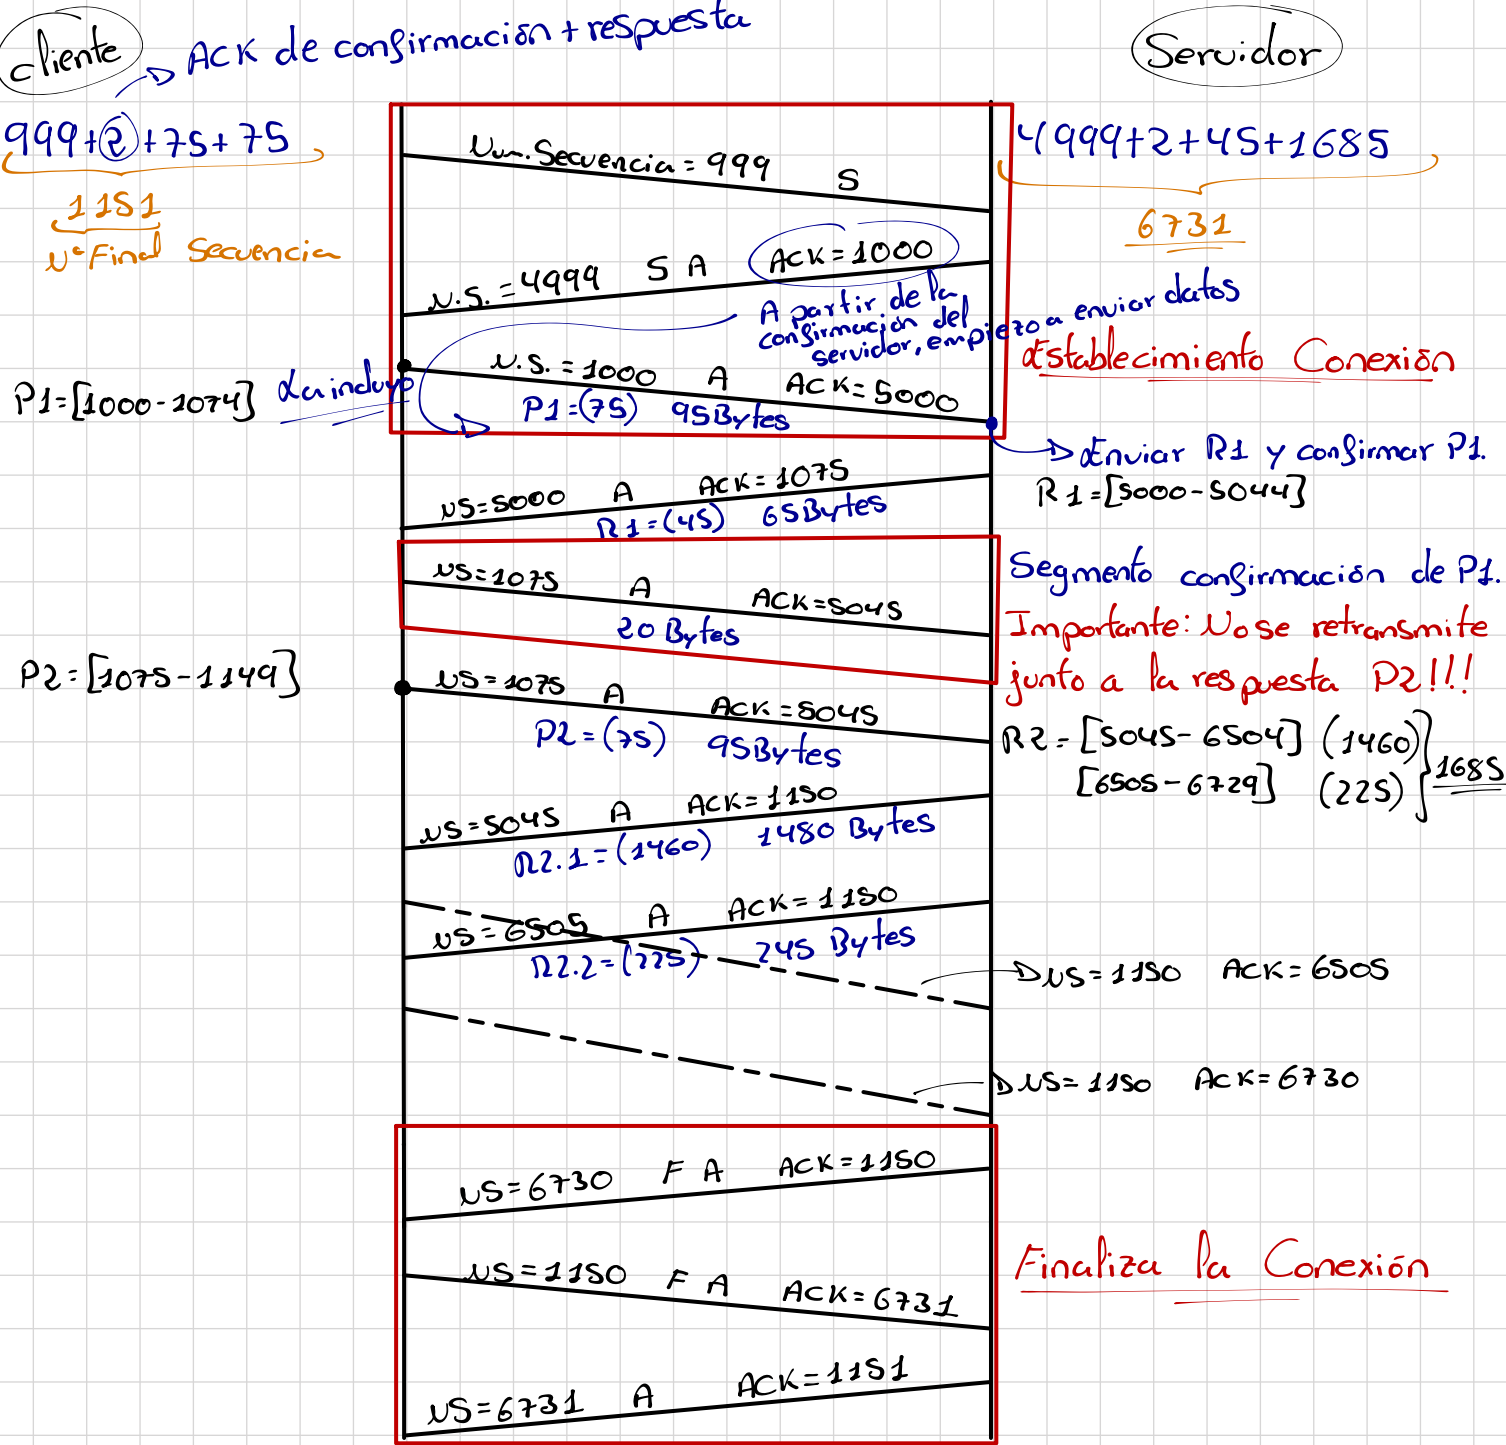 cliente
ACK de confirmación + respuesta
Servidor
999+2+75+75
1151
Nº Final Secuencia
4999+2+45+1685
6731
Num. Secuencia = 999 S
N.S. = 4999 S A ACK = 1000
A partir de la
confirmación del
servidor, empiezo a enviar datos
Establecimiento Conexión
N.S. = 1000 A ACK = 5000
P1=(75) 95Bytes
P1=[1000-1074] La incluyo
Enviar R1 y confirmar P1.
R1=[5000-5044]
NS=5000 A ACK=1075
R1=(45) 65Bytes
NS=1075 A ACK=5045
20 Bytes
Segmento confirmación de P1.
Importante: No se retransmite
junto a la respuesta P2!!!
P2=[1075-1149]
NS=1075 A ACK=5045
P2=(75) 95Bytes
R2=[5045-6504] (1460)
[6505-6729] (225)
1685
NS=5045 A ACK=1150
R2.1=(1460) 1480 Bytes
NS=6505 A ACK=1150
R2.2=(225) 245 Bytes
NS=1150 ACK=6505
NS=1150 ACK=6730
NS=6730 F A ACK=1150
NS=1150 F A ACK=6731
Finaliza la Conexión
NS=6731 A ACK=1151